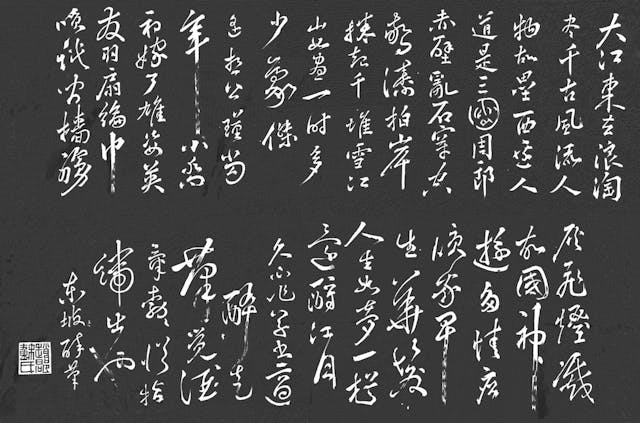 大江東去浪淘
尽千古風流人
物故壘西邊人
道是三國周郎
赤壁亂石穿空
驚濤拍岸
捲起千堆雪江
山如畫一時多
少豪傑
遙想公瑾當
年小喬
初嫁了雄姿英
發羽扇綸巾
笑談間檣艣
灰飛煙滅
故國神
遊多情應
笑我早
生華髮
人生如夢一樽
還酹江月
久不作草書適
醉走
筆覺酒
氣勃勃從指
端出也
東坡醉筆